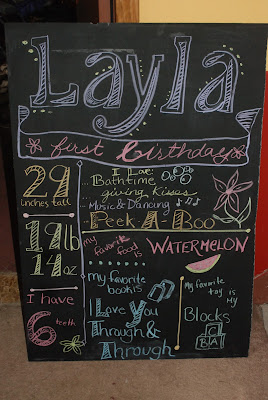 Layla
first birthday
29
inches tall
19lb
14oz
I have
6 teeth
I Love:
Bathtime
giving kisses
Music & Dancing
Peek-A-Boo
my favorite
food is
WATERMELON
my favorite
book is
I Love You
Through &
Through
My favorite
toy is
my
Blocks
C
B A